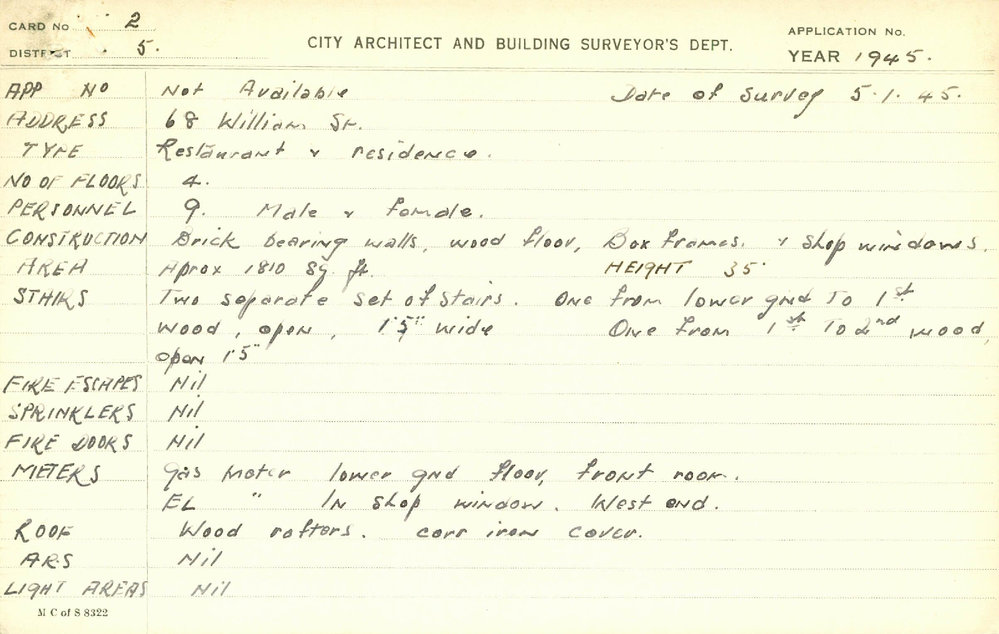 CARD No 2
DISTRICT 5.
CITY ARCHITECT AND BUILDING SURVEYOR'S DEPT.
APPLICATION No.
YEAR 1945.
APP NO Not Available Date of Survey 5.1.45.
ADDRESS 68 William St.
TYPE Restaurant & residence.
NO OF FLOORS 4.
PERSONNEL 9. Male & female.
CONSTRUCTION Brick bearing walls, wood floor, Box frames. & shop windows.
AREA Aprox 1810 sq ft. HEIGHT 35'
STAIRS Two separate set of stairs. One from lower gnd To 1st
wood, open, 1'5" wide One from 1st To 2nd wood,
open 1'5"
FIRE ESCAPES Nil
SPRINKLERS Nil
FIRE DOORS Nil
METERS Gas meter lower gnd floor, front room.
EL " In shop window. West end.
ROOF Wood rafters. corr iron cover.
ARS Nil
LIGHT AREAS Nil
M C of S 8322